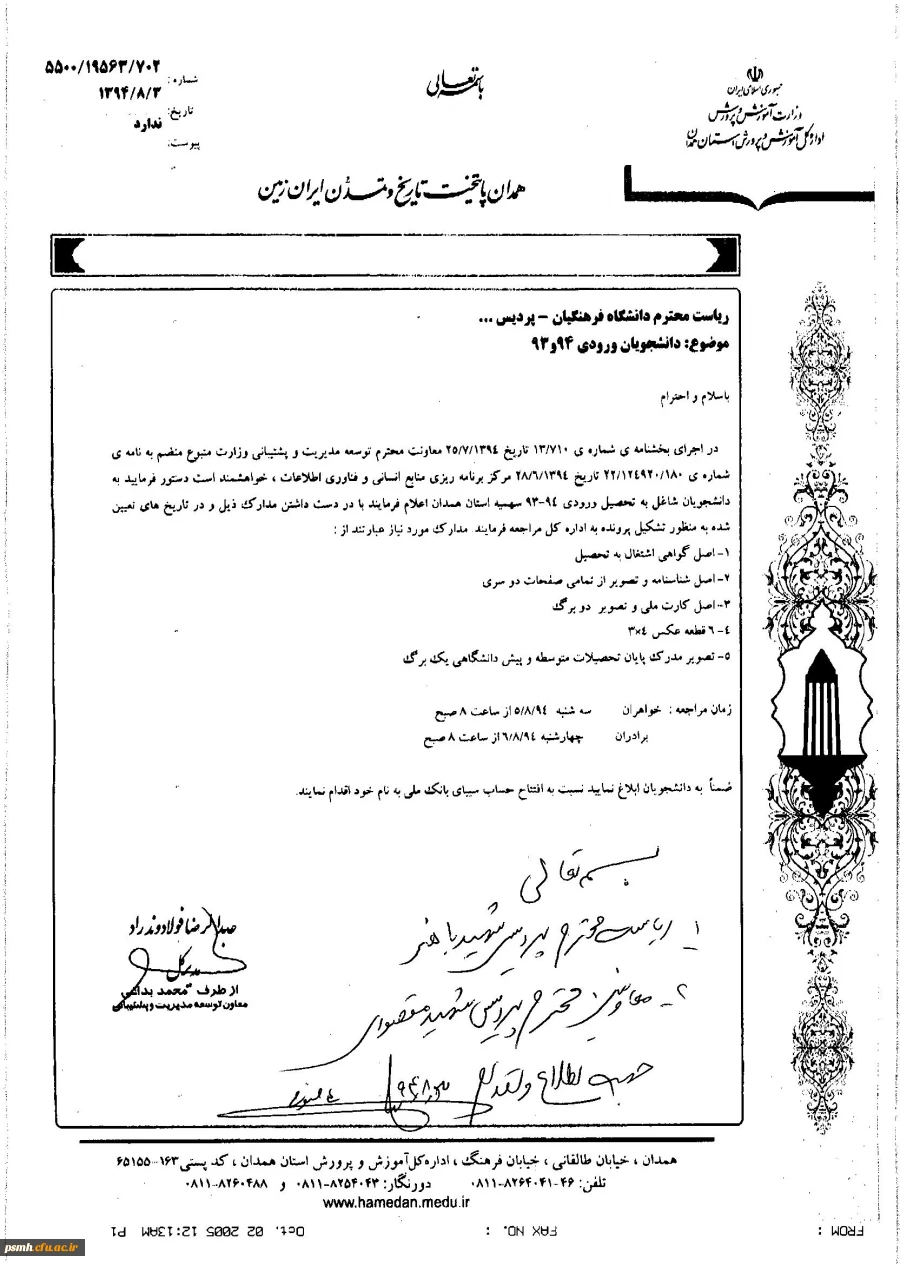 باسمه تعالی
جمهوری اسلامی ایران
وزارت آموزش و پرورش
اداره کل آموزش و پرورش استان همدان
شماره: ۵۵۰۰/۱۹۵۶۳/۷۰۲
تاریخ: ۱۳۹۴/۸/۳
پیوست: ندارد
همدان پایتخت تاریخ و تمدن ایران زمین
ریاست محترم دانشگاه فرهنگیان – پردیس ...
موضوع: دانشجویان ورودی ۹۴و۹۳
باسلام و احترام
در اجرای بخشنامه ی شماره ی ۱۳/۷۱۰ تاریخ ۲۵/۷/۱۳۹۴ معاونت محترم توسعه مدیریت و پشتیبانی وزارت متبوع منضم به نامه ی
شماره ی ۲۲/۱۲۴۹۲۰/۱۸۰ تاریخ ۲۸/۶/۱۳۹۴ مرکز برنامه ریزی منابع انسانی و فناوری اطلاعات ، خواهشمند است دستور فرمایید به
دانشجویان شاغل به تحصیل ورودی ۹۴-۹۳ سهمیه استان همدان اعلام فرمایند با در دست داشتن مدارک ذیل و در تاریخ های تعیین
شده به منظور تشکیل پرونده به اداره کل مراجعه فرمایند. مدارک مورد نیاز عبارتند از :
۱- اصل گواهی اشتغال به تحصیل
۲- اصل شناسنامه و تصویر از تمامی صفحات دو سری
۳- اصل کارت ملی و تصویر دو برگ
۴- ۶ قطعه عکس ۴×۳
۵- تصویر مدرک پایان تحصیلات متوسطه و پیش دانشگاهی یک برگ
زمان مراجعه : خواهران سه شنبه ۵/۸/۹۴ از ساعت ۸ صبح
برادران چهارشنبه ۶/۸/۹۴ از ساعت ۸ صبح
ضمناً به دانشجویان ابلاغ نمایید نسبت به افتتاح حساب سیبای بانک ملی به نام خود اقدام نمایند.
بسمه تعالی
۱- ریاست محترم پردیس شهید باهنر
۲- معاونت محترم پردیس شهید مقصودی
جهت اطلاع و
فولادوند راد
مدیر کل
از طرف محمد بداشی
معاون توسعه مدیریت و پشتیبانی
همدان ، خیابان طالقانی ، خیابان فرهنگ ، اداره کل آموزش و پرورش استان همدان ، کد پستی ۱۶۳-۶۵۱۵۵
تلفن: ۴۶-۸۲۶۴۰۴۱-۰۸۱۱ دورنگار: ۸۲۵۴۰۴۳-۰۸۱۱ و ۸۲۶۰۴۸۸-۰۸۱۱
www.hamedan.medu.ir
FROM : FAX NO. : Oct. 02 2005 12:13AM P1
psmh.cfu.ac.ir